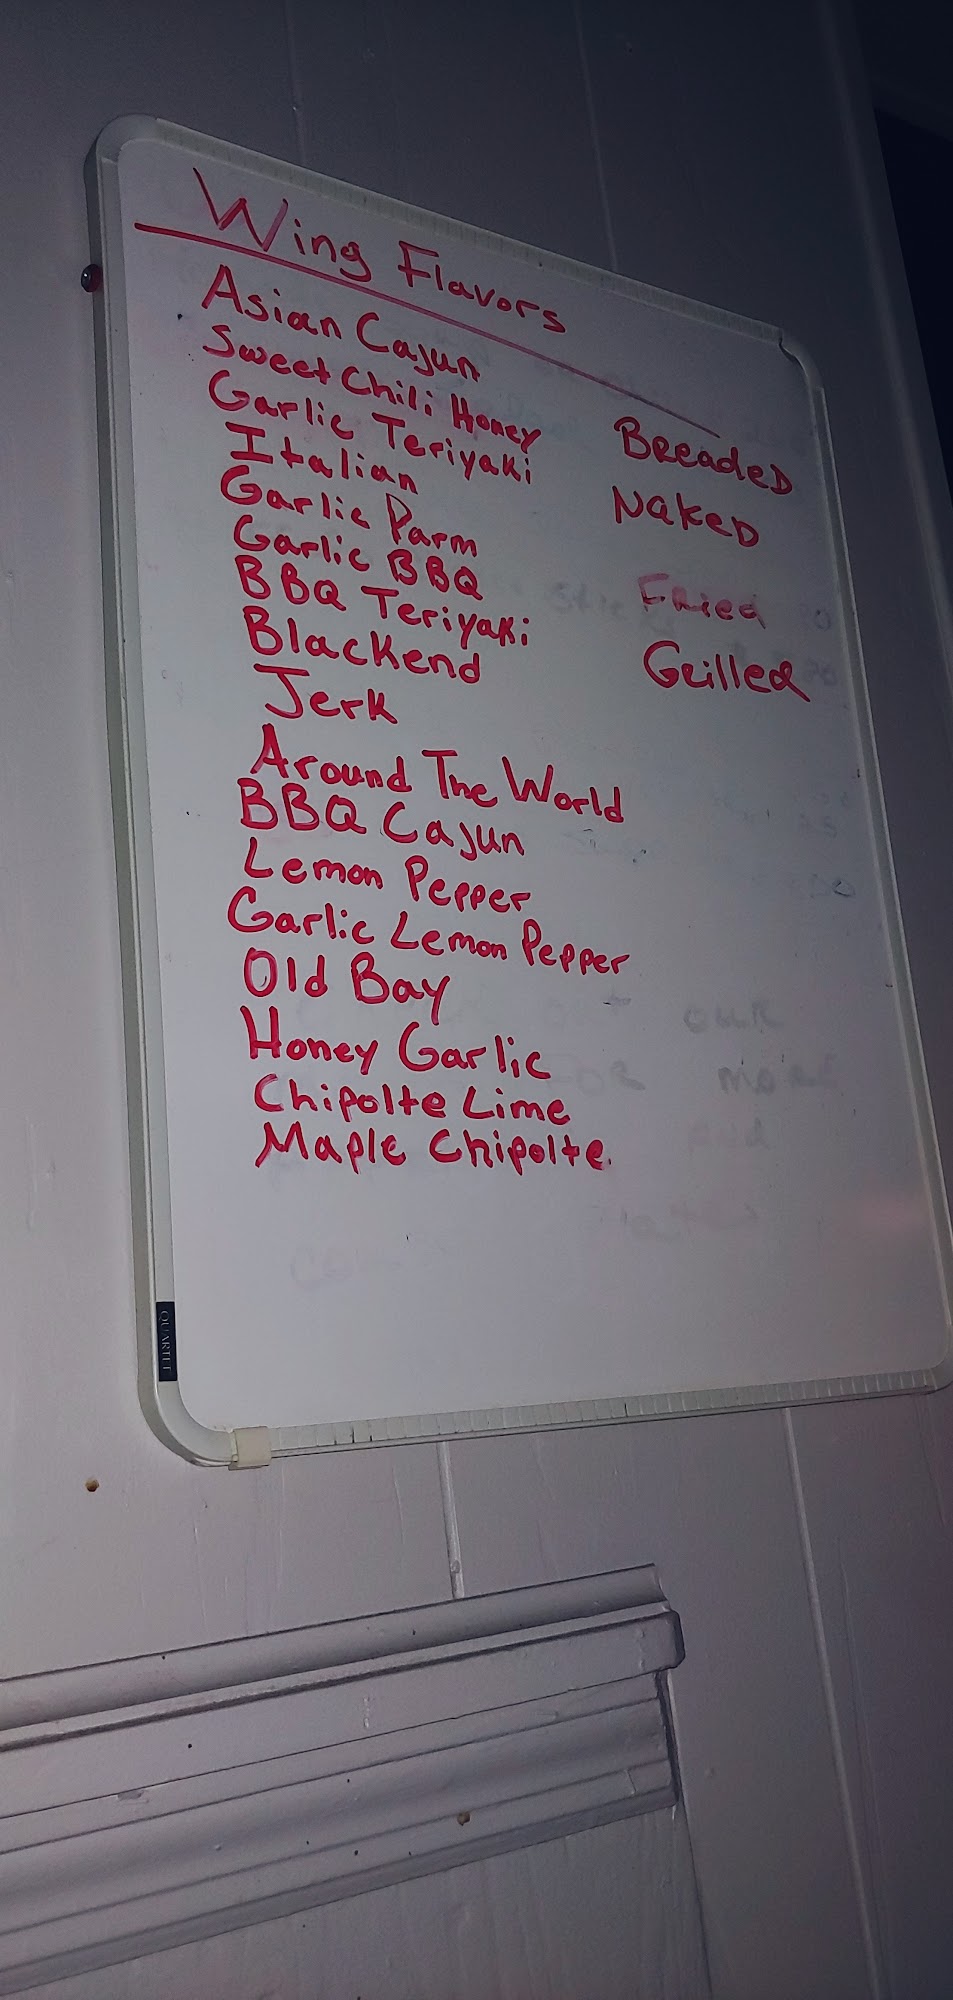 Wing Flavors
Asian Cajun
Sweet Chili Honey
Garlic Teriyaki
Italian
Garlic Parm
Garlic BBQ
BBQ Teriyaki
Blackend
Jerk
Around The World
BBQ Cajun
Lemon Pepper
Garlic Lemon Pepper
Old Bay
Honey Garlic
Chipolte Lime
Maple Chipolte.
Breaded
Naked
Fried
Grilled
our
FOR MORE
QUARTET